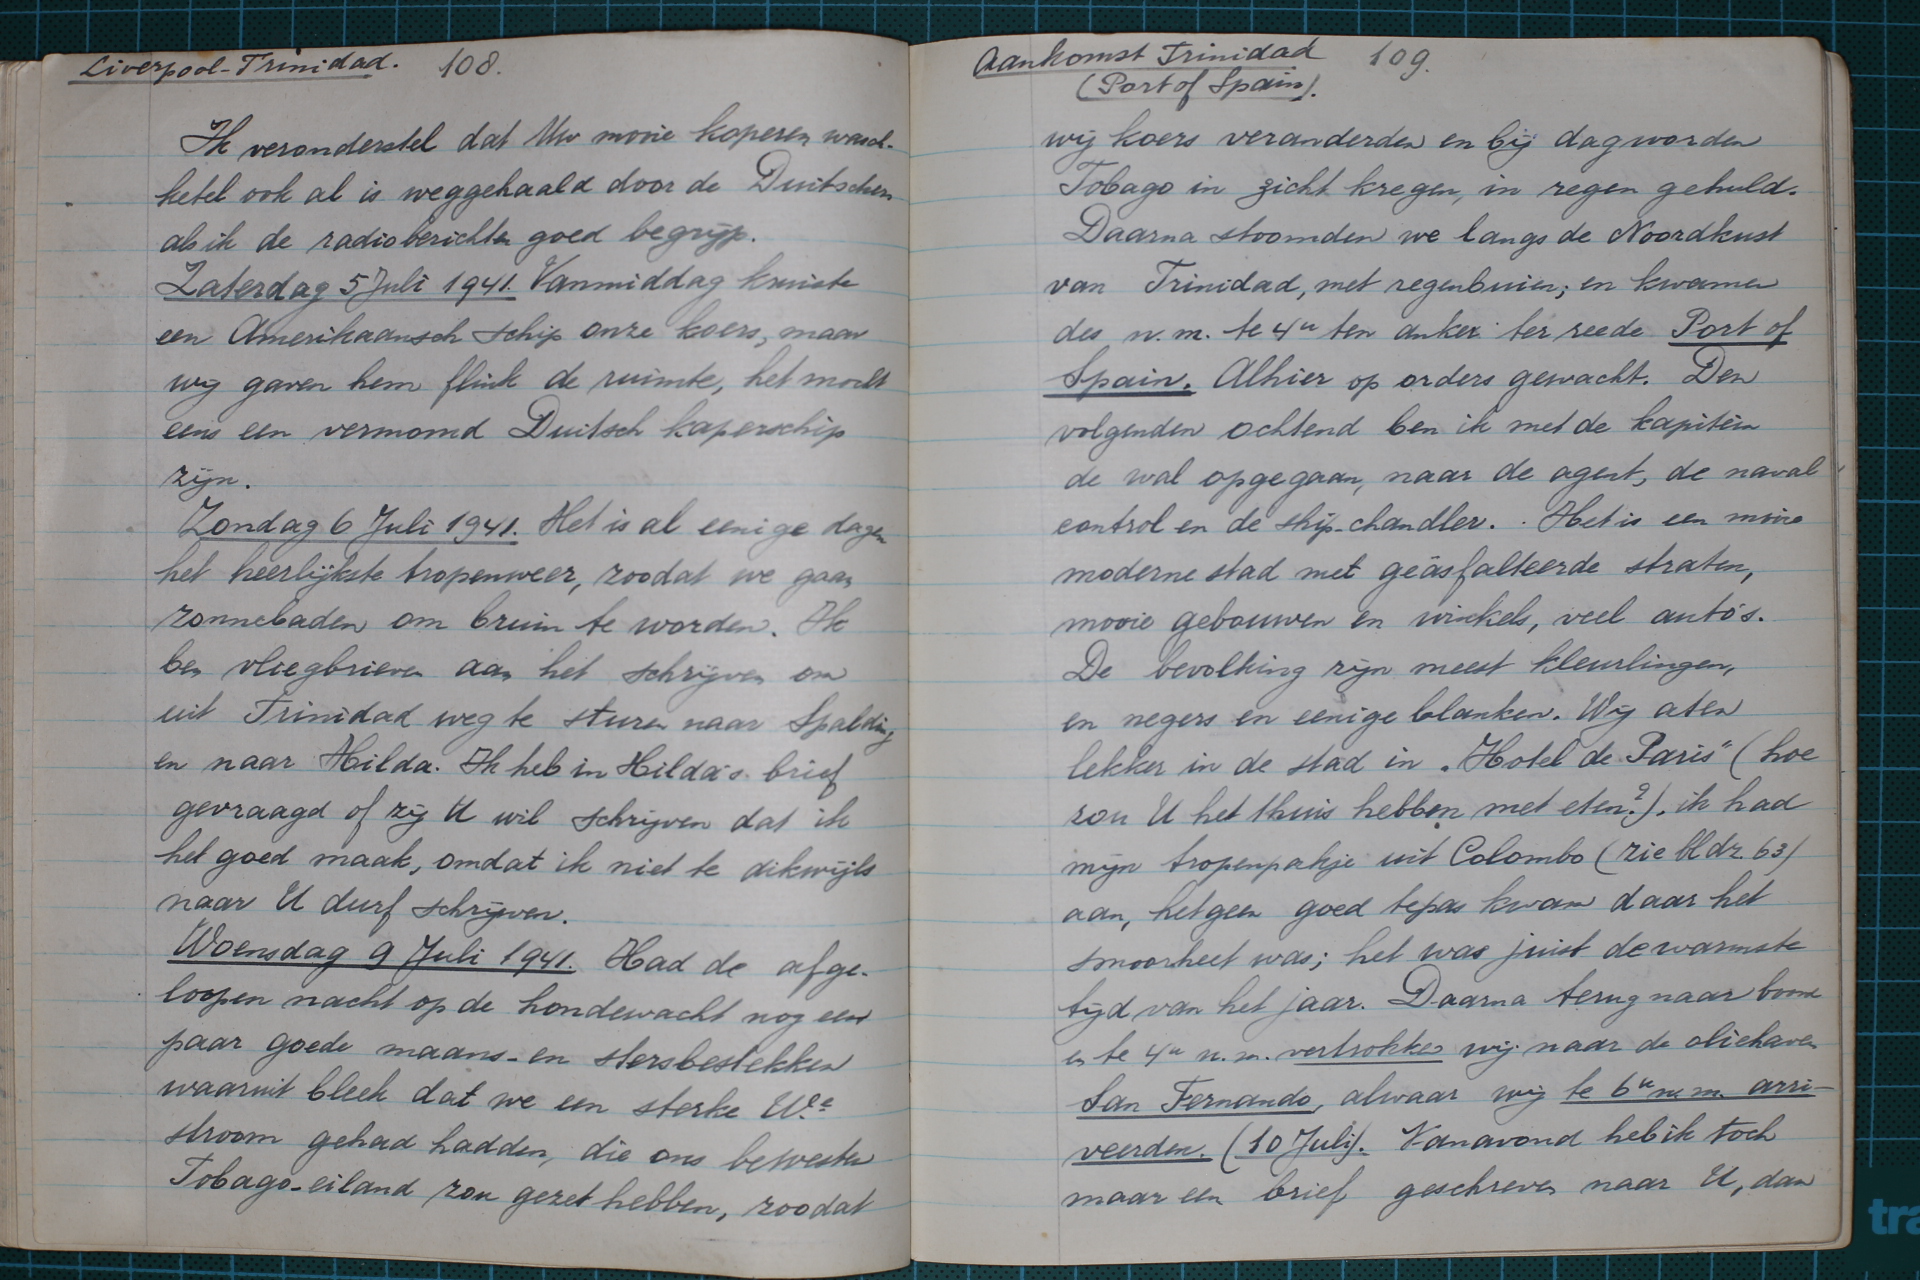 Liverpool-Trinidad. 108.
Ik veronderstel dat Uw mooie koperen wasch-
ketel ook al is weggehaald door de Duitschers
als ik de radioberichten goed begrijp.
Zaterdag 5 Juli 1941. Vanmiddag kruiste
een Amerikaansch schip onze koers, maar
wij gaven hem flink de ruimte, het mocht
eens een vermomd Duitsch kaperschip
zijn.
Zondag 6 Juli 1941. Het is al eenige dagen
het heerlijkste tropenweer, zoodat we gaan
zonnebaden om bruin te worden. Ik
ben vliegbrieven aan het schrijven om
uit Trinidad weg te sturen naar Spalding
en naar Hilda. Ik heb in Hilda's brief
gevraagd of zij U wil schrijven dat ik
het goed maak, omdat ik niet te dikwijls
naar U durf schrijven.
Woensdag 9 Juli 1941. Had de afge-
loopen nacht op de hondewacht nog een
paar goede maans- en stersbestekken
waaruit bleek dat we een sterke W.e
stroom gehad hadden, die ons bewesten
Tobago-eiland zou gezet hebben, zoodat
Aankomst Trinidad 109.
(Port of Spain).
wij koers veranderden en bij dagworden
Tobago in zicht kregen, in regen gehuld.
Daarna stoomden we langs de Noordkust
van Trinidad, met regenbuien; en kwamen
des n.m. te 4u ten anker ter reede Port of
Spain. Alhier op orders gewacht. Den
volgenden ochtend ben ik met de kapitein
de wal opgegaan, naar de agent, de naval
control en de ship-chandler. Het is een mooie
moderne stad met geäsfalteerde straten,
mooie gebouwen en winkels, veel auto's.
De bevolking zijn meest kleurlingen,
en negers en eenige blanken. Wij aten
lekker in de stad in "Hotel de Paris" (hoe
zou U het thuis hebben met eten?). ik had
mijn tropenpakje uit Colombo (zie bldz. 63)
aan, hetgeen goed tepas kwam daar het
smoorheet was; het was juist de warmste
tijd van het jaar. Daarna terug naar boord
en te 4u n.m. vertrokken wij naar de oliehaven
San Fernando, alwaar wij te 6u n.m. arri-
veerden. (10 Juli). Vanavond heb ik toch
maar een brief geschreven naar U, dan
tra